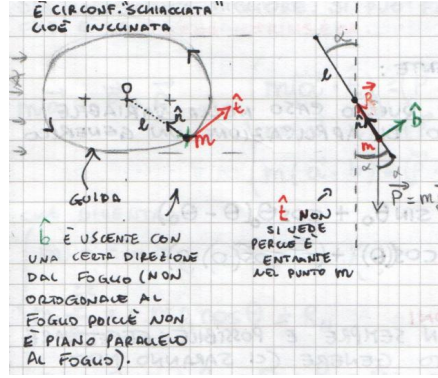 È CIRCONF. "SCHIACCIATA"
CIOÈ INCLINATA
O
n̂
t̂
l
m
GUIDA
b̂ È USCENTE CON
UNA CERTA DIREZIONE
DAL FOGLIO (NON
ORTOGONALE AL
FOGLIO POICHÈ NON
È PIANO PARALLELO
AL FOGLIO).
α
l
n̂
b̂
m
α
α
P = m
t̂ NON
SI VEDE
PERCHÈ È
ENTRANTE
NEL PUNTO m